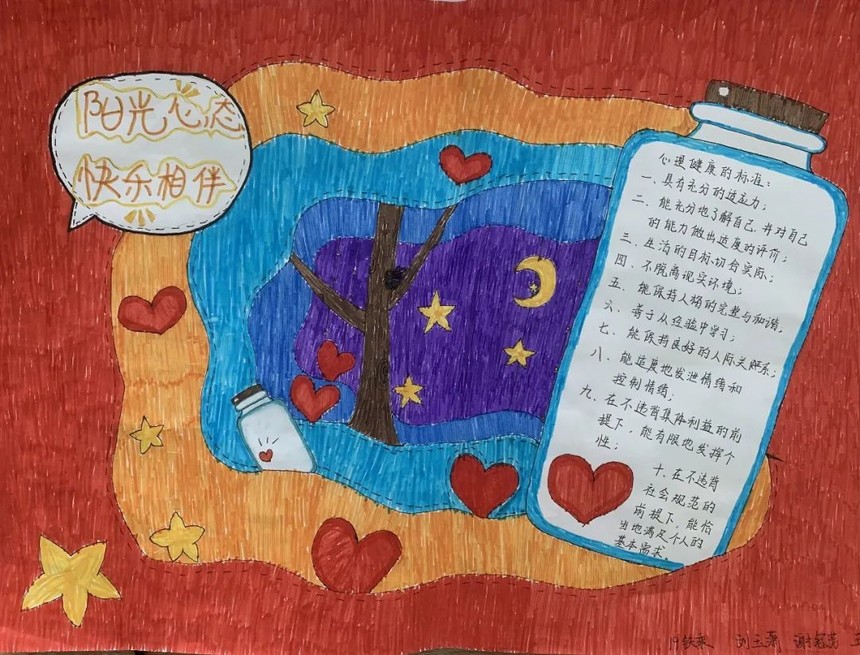 阳光心态
快乐相伴
心理健康的标准：
一、具有充分的适应力；
二、能充分地了解自己，并对自己
的能力做出适度的评价；
三、生活的目标切合实际；
四、不脱离现实环境；
五、能保持人格的完整与和谐，
六、善于从经验中学习；
七、能保持良好的人际关系；
八、能适度地发泄情绪和
控制情绪；
九、在不违背集体利益的前
提下，能有限地发挥个
性；
十、在不违背
社会规范的
前提下，能恰
当地满足个人的
基本需求
19 刘玉萧 谢